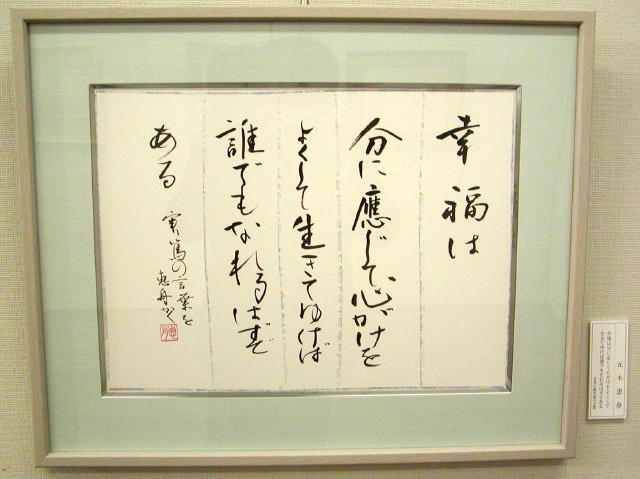 幸福は
分に應じて、心がけを
よくして生きてゆけば
誰でもなれるはずで
ある
実篤の言葉を
恵舟書
元木恵舟